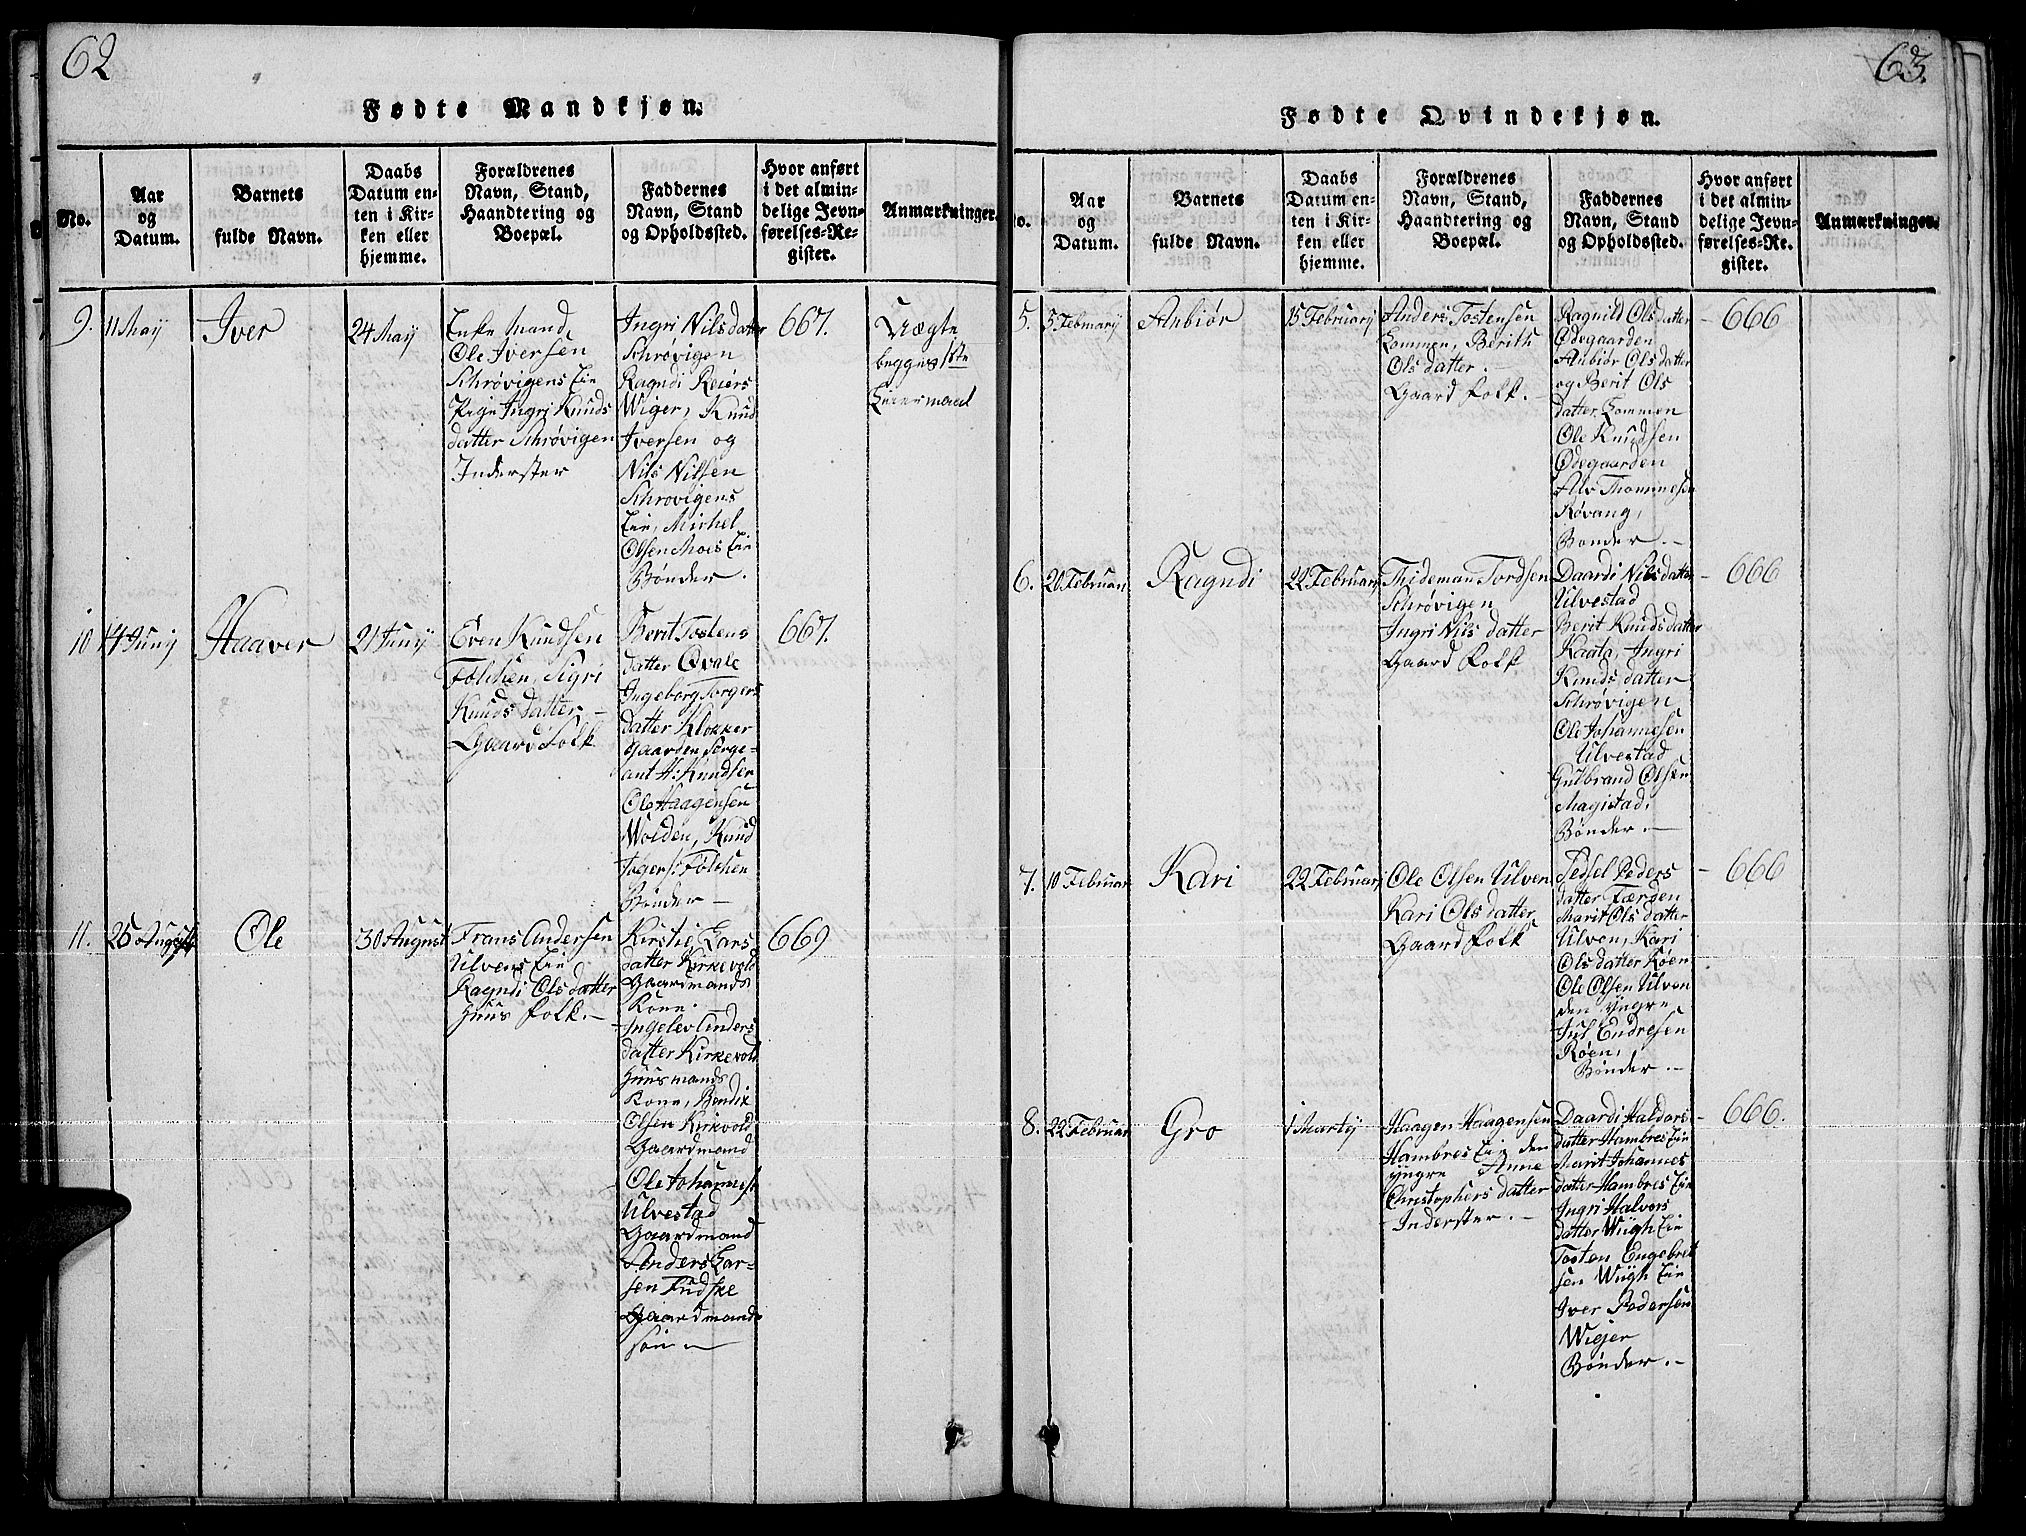 62
Fødte Mandkjøn.
No.
Aar
og
Datum.
Barnets
fulde Navn.
Daabs
Datum en-
ten i Kir-
ken eller
hjemme.
Forældrenes
Navn, Stand,
Haandtering og
Boepæl.
Faddernes
Navn, Stand
og Opholdssted.
Hvor anført
i det almin-
delige Jevn-
førelses-Re-
gister.
Anmærkninger.
9.
11 Maij
Iver
24 Maij
Enke Mand
Ole Iversen
Schrøvigens Eie
Pige Ingri Knuds
datter Schrøvigen
Inderster
Ingri Nilsdatter
Schrøvigen
Ragndi Reiers
Wiger, Knud
Iversen og
Nils Nilsen
Schrøvigens
Eie, Michel
Olsen Moes Eie
Bønder.
667.
Uægte
begges 1ste
Leiermaal
10
14 Junij
Haaver
21 Junij
Even Knudsen
Følchen, Sigri
Knuds datter
Gaard Folk
Berit Tostens
datter Qvale
Ingeborg Torgers
datter Klokker
gaarden, Serge-
ant H: Knudsen
Ole Haagensen
Wolden, Knud
Følchen
Bønder
667.
11.
25 August
Ole
30 August
Frans Andersen
Ulvens Eie
Ragndi Olsdatter
Huus Folk.
Kirstie Lars
datter Kirkevold
Gaardmands
Kone.
Ingelev Anders
datter Kirkevold
Huusmands
Kone, Bendix
Olsen Kirkvold
Gaardmand
Ole Johannes:
Ulvestad
Gaardmand
Anders Lar-
sen Fudske
Gaardmands
søn
669
63.
Fødte Qvindekjøn.
No.
Aar
og
Datum.
Barnets
fulde Navn.
Daabs
Datum en-
ten i Kir-
ken eller
hjemme.
Forældrenes
Navn, Stand,
Haandtering og
Boepæl.
Faddernes
Navn, Stand
og Opholdssted.
Hvor anført
i det almin-
delige Jevn-
førelses-Re-
gister.
Anmærkninger.
5.
5 Februarij
Anbiør
15 Februarij
Anders Tostensen
Lommen, Berith
Olsdatter.
Gaard Folk.
Ragnild Olsdatter
Ødegaarden
Anbiør Olsdatter
og Berit Ols
datter Lommen
Ole Knudsen
Ødegaarden
Alv Thommesen
Røvang,
Bønder.
666
6.
20 Februar
Ragndi
22 Februarij
Thideman Tordsen
Schrøvigen
Ingri Nils datter
Gaard Folk
Daardi Nilsdatter
Ulvestad
Berit Knudsdatter
Kaata, Ingri
Knuds datter
Schrøvigen
Ole Johannesen
Ulvestad
Gulbrand Olsen
Magistad,
Bønder.
666
7.
10 Februar
Kari
22 Februarij
Ole Olsen Ulven
Kari Olsdatter
Gaard Folk
Sedsel Peders
datter Færden
Marit Olsdatter
Ulven, Kari
Olsdatter Røen
Ole Olsen Ulven
den yngre
Jul Endresen
Røen,
Bønder.
666
8.
22 Februar
Gro
1 Martij
Haagen Haagensen
Hambres Eie den
yngre Anne
Christophers datter
Inderster.
Daardi Haldors
datter Hambres Eie
Marit Johannes
datter Hambres Eie
Ingri Halvors
datter Wiigh Eie
Tosten Engebret
sen Wiigh Eie
Iver Pedersen
Wigjer
Bønder.
666.